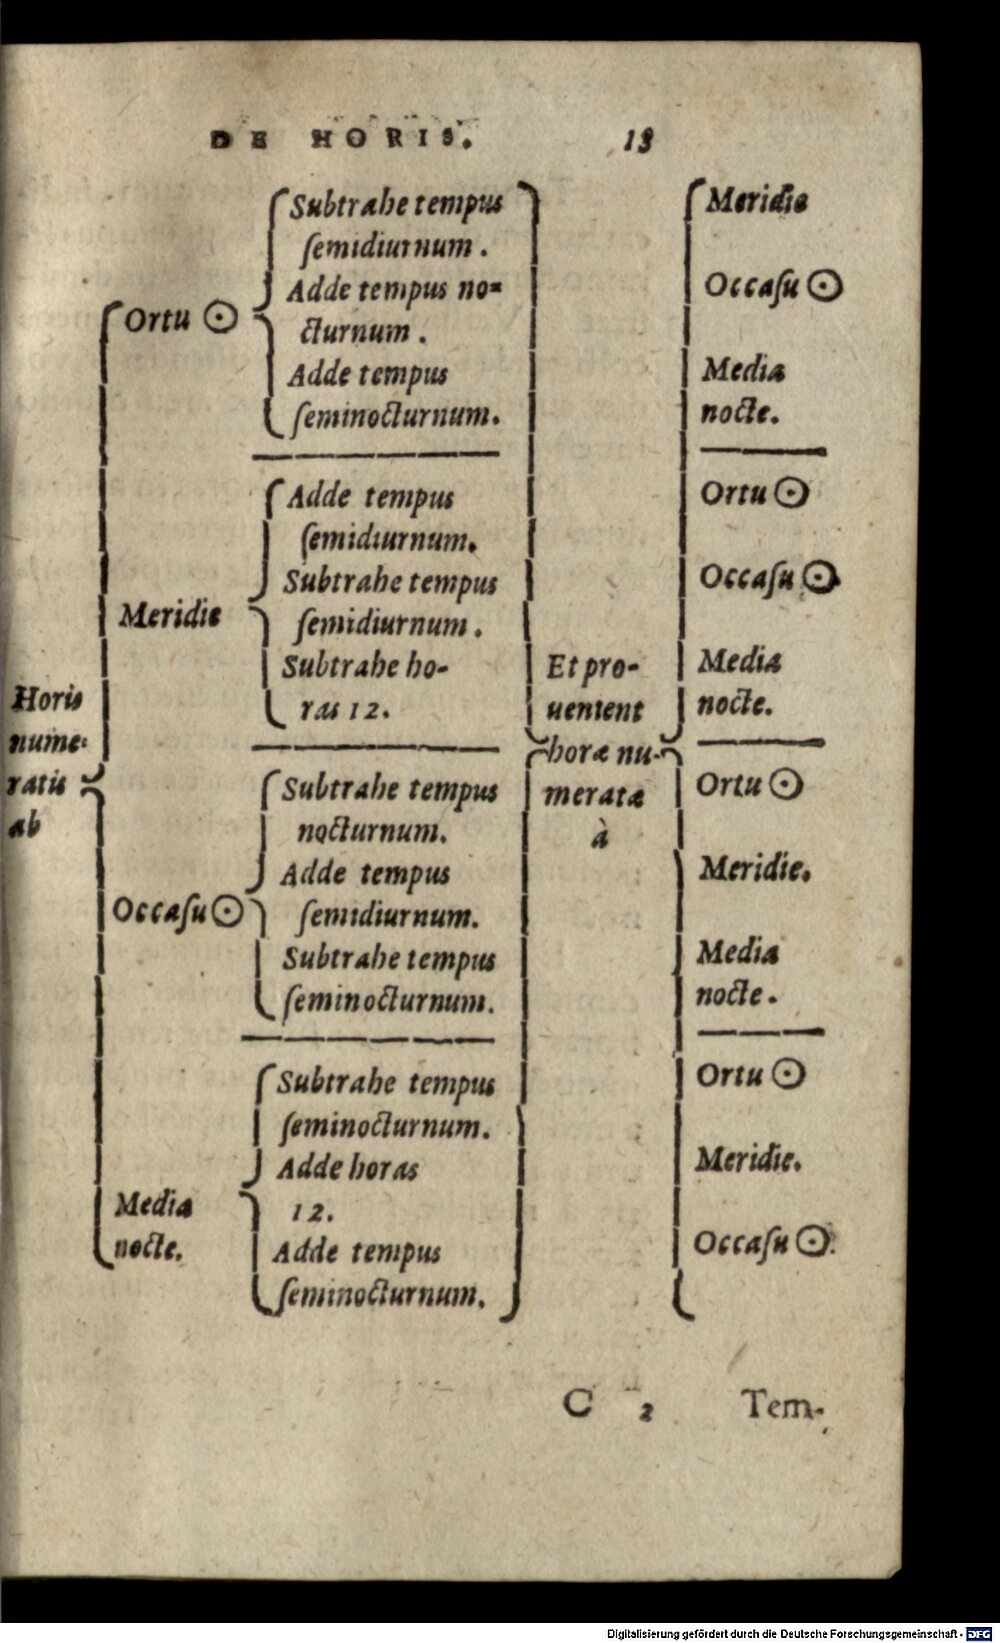 DE HORIS. 13
Horis
nume-
ratis
ab
Ortu ☉
Subtrahe tempus
ſemidiurnum.
Adde tempus no-
cturnum.
Adde tempus
ſeminocturnum.
Meridie
Adde tempus
ſemidiurnum.
Subtrahe tempus
ſemidiurnum.
Subtrahe ho-
ras 12.
Occaſu ☉
Subtrahe tempus
nocturnum.
Adde tempus
ſemidiurnum.
Subtrahe tempus
ſeminocturnum.
Media
nocte.
Subtrahe tempus
ſeminocturnum.
Adde horas
12.
Adde tempus
ſeminocturnum.
Et pro-
uenient
horæ nu-
meratæ
à
Meridie
Occaſu ☉
Media
nocte.
Ortu ☉
Occaſu ☉
Media
nocte.
Ortu ☉
Meridie.
Media
nocte.
Ortu ☉
Meridie.
Occaſu ☉.
C 2 Tem-
Digitalisierung gefördert durch die Deutsche Forschungsgemeinschaft - DFG